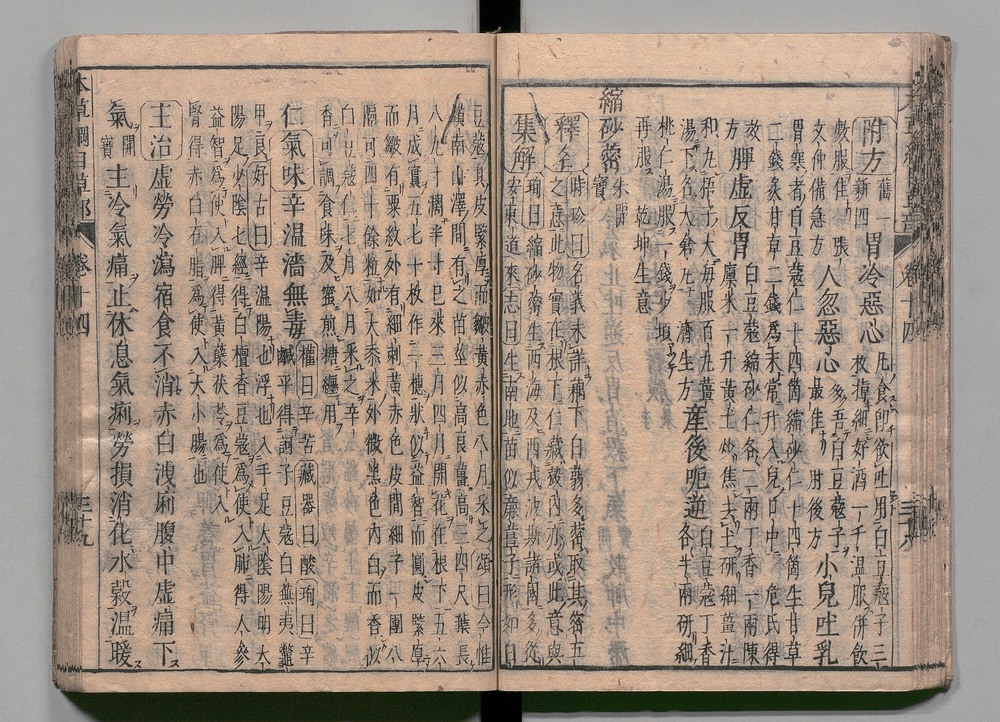 附方
舊一
新四
胃冷惡心
凡食即欲吐用白豆蔻子三
枚擣細好酒一千温服併飲
數服佳 張
文仲備急方
人忽惡心
多吾白豆蔻子
最佳 肘後方
小兒吐乳
胃寒者白豆蔻仁十四箇縮砂仁十四箇生甘草
二錢炙甘草二錢爲末常升入兒口中 危氏得
效方
脾虛反胃
白豆蔻縮砂仁各二兩丁香一兩陳
廩米一升黃土炒焦去土研細薑汁
和丸梧子大每服百丸薑
湯下名太倉丸 濟生方
産後呃逆
白豆蔻丁香
各半兩研細
桃仁湯服一錢少頃
再服 乾坤生意
縮砂蔤
宋開
寶
釋名
時珍曰名義未詳藕下白蒻多蔤取其密五
之意此物實在根下仁藏殼内亦或此意與
集解
珣曰縮砂蔤生西海及西戎波斯諸國多從
安東道來志曰生南地苗似廉薑子形如白
豆蔻其皮緊厚而皺黃赤色八月采之頌曰今惟
嶺南山澤間有之苗莖似高良薑高三四尺葉長
八九寸濶半寸已來三月四月開花在根下五六
月成實五七十枚作一穗狀似益智而圓皮緊厚
而皺有栗紋外有細刺黃赤色皮間細子一團八
隔可四十餘粒如大黍米外微黑色内白而香似
白豆蔻仁七月八月采之辛
香可調食味及蜜煎糖纏用
仁氣味辛温濇無毒
權曰辛苦藏器曰酸珣曰辛
鹹平得訶子豆蔻白蕪夷鼈
甲良好古曰辛温陽也浮也入手足太陰陽明太
陽足少陰七經得白檀香豆蔻爲使入肺得人參
益智爲使入脾得黃蘗茯苓爲使入
腎得赤白石脂爲使入大小腸也
主治虛勞冷瀉宿食不消赤白洩痢腹中虛痛下
氣
開
寶
主冷氣痛止休息氣痢勞損消化水穀温暖
本草綱目草部 卷十四 三十九